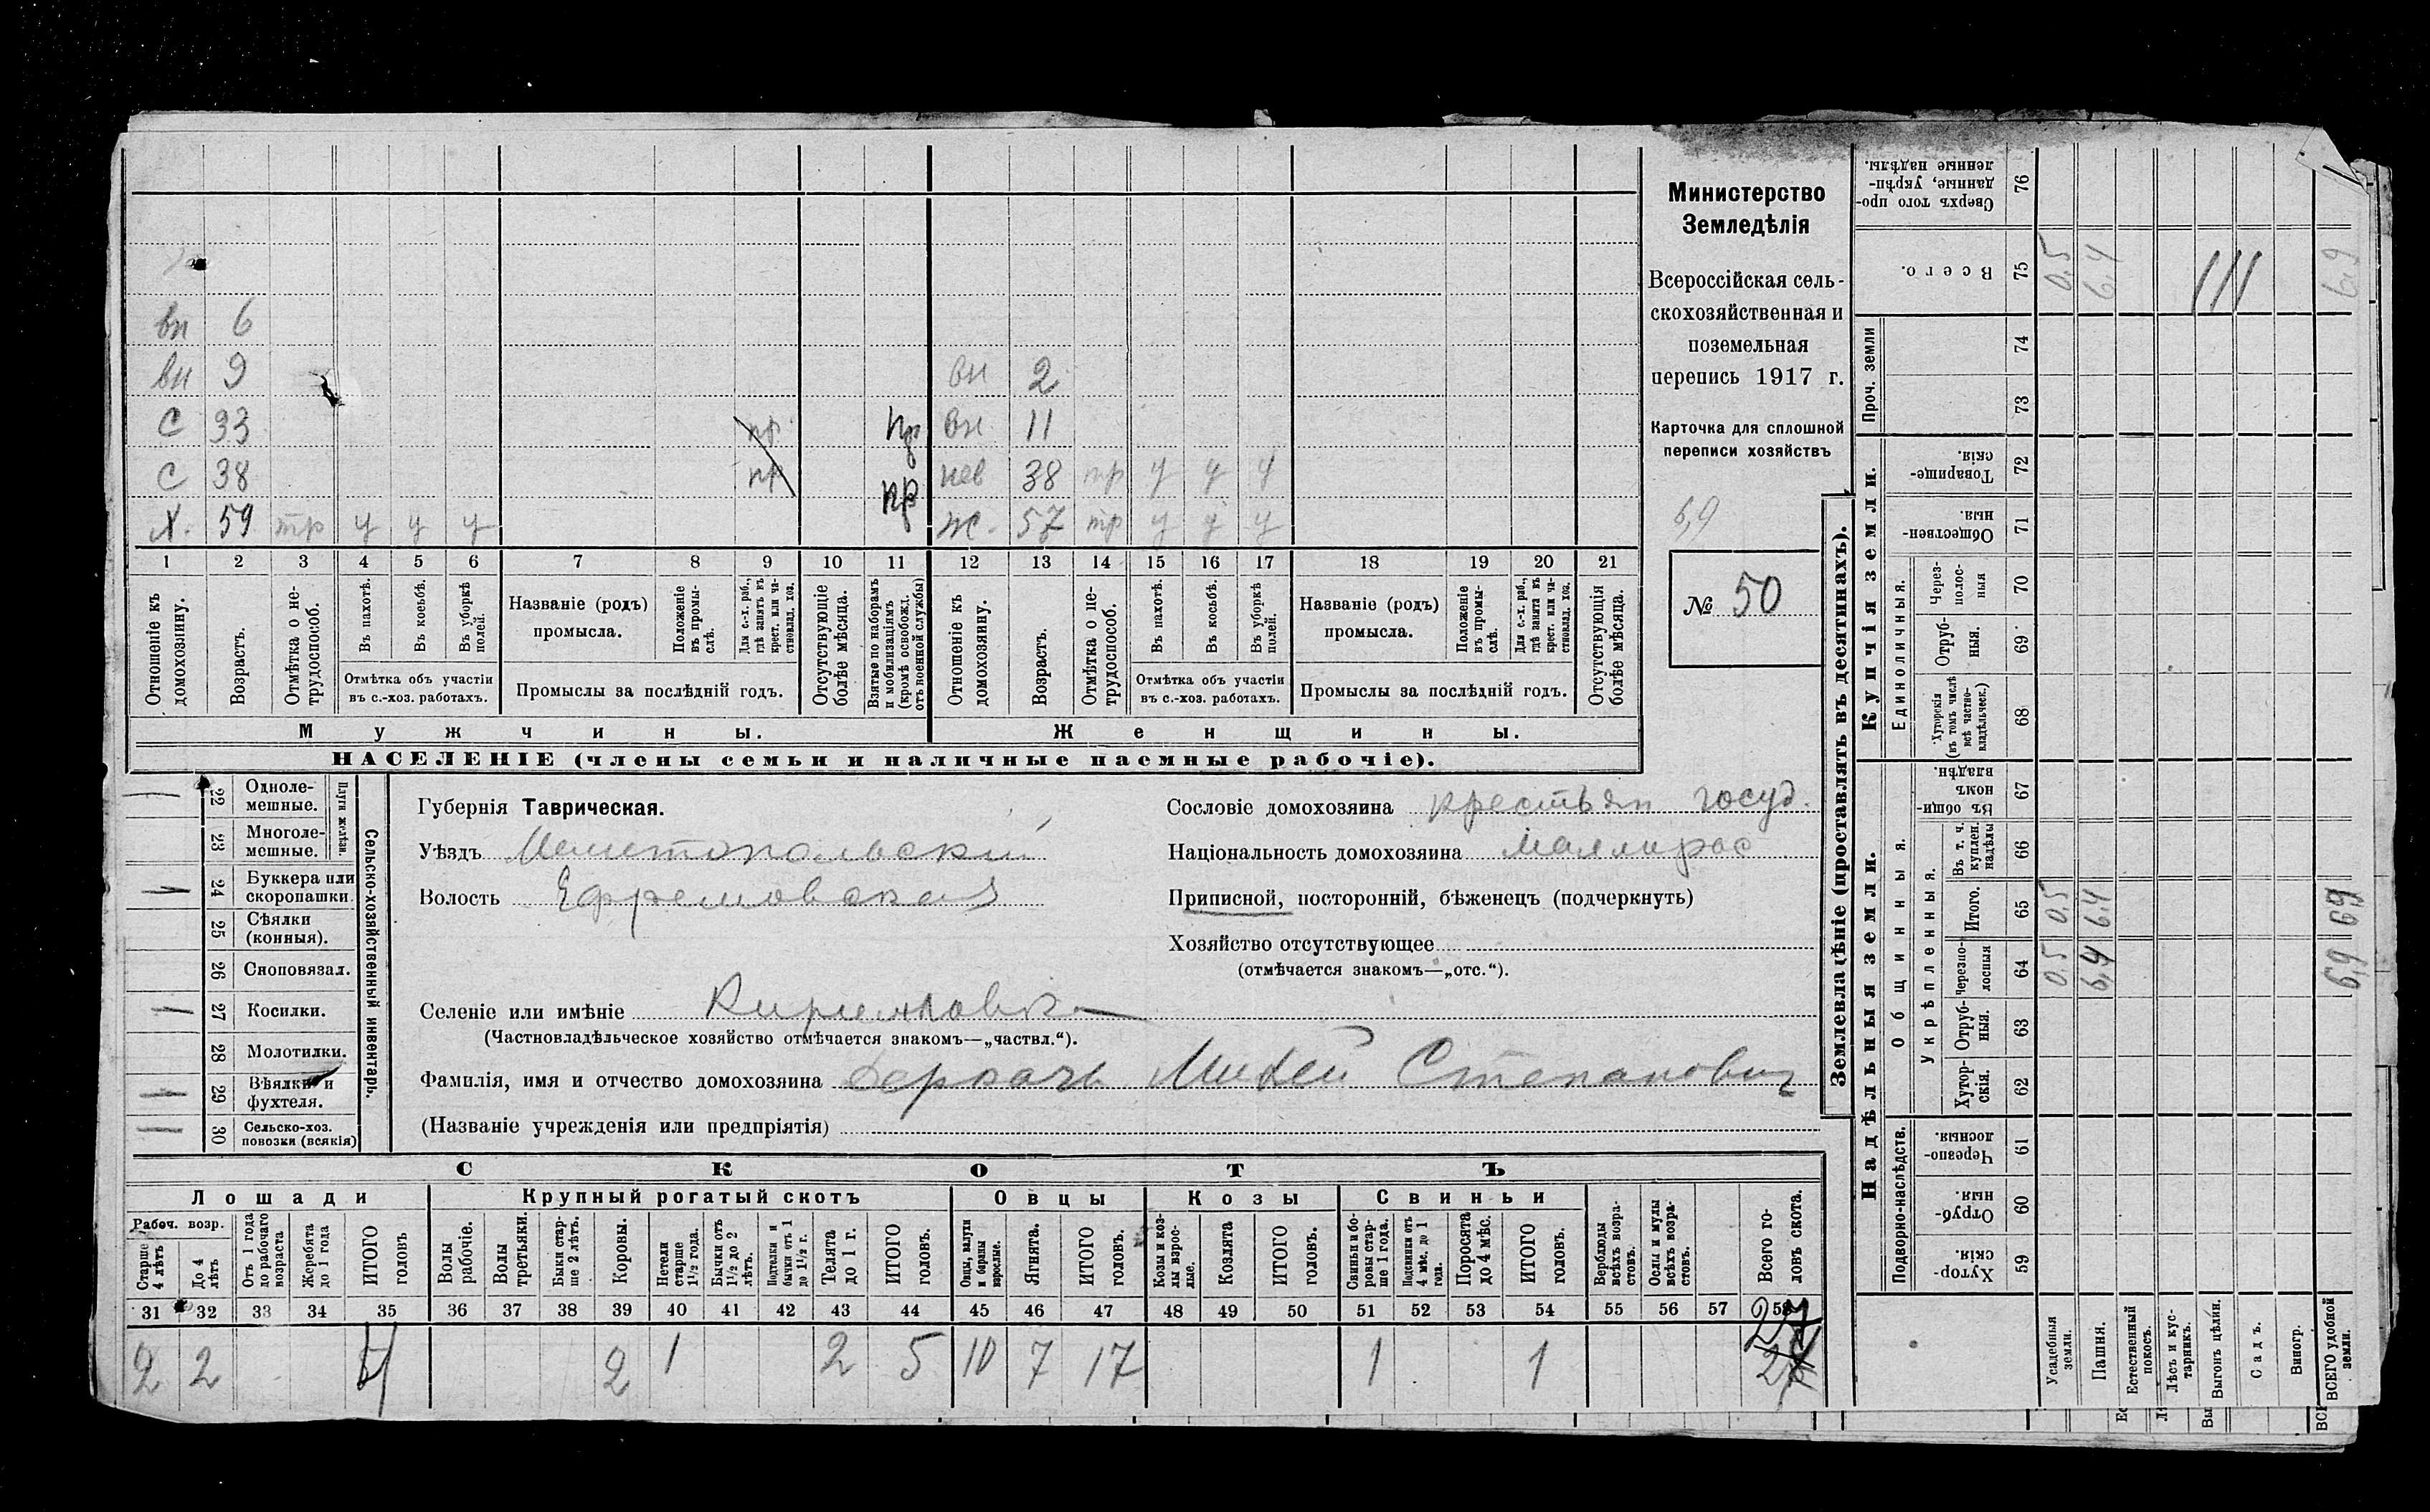 вн 6
вн 9 вн 2
С 33 пр пр вн 11
С 38 пр пр нев 38 нтр у у у
Х. 59 нтр у у у ж. 57 нтр у у у
1 2 3 4 5 6 7 8 9 10 11 12 13 14 15 16 17 18 19 20 21
Отношеніе къ домохозяину.
Возрастъ.
Отмѣтка о не-трудоспособ.
Въ пахотѣ.
Въ косьбѣ.
Въ уборкѣ полей.
Отмѣтка объ участіи
въ с.-хоз. работахъ.
Названіе (родъ)
промысла.
Положеніе въ промы-слѣ.
Для с.-х. раб., гдѣ занятъ въ крест. или ча-стновлад. хоз.
Промыслы за послѣдній годъ.
Отсутствующіе болѣе мѣсяца.
Взятые по наборамъ и мобилизаціямъ (кромѣ освобожд. отъ военной службы)
Отношеніе къ домохозяину.
Возрастъ.
Отмѣтка о не-трудоспособ.
Въ пахотѣ.
Въ косьбѣ.
Въ уборкѣ полей.
Отмѣтка объ участіи
въ с.-хоз. работахъ.
Названіе (родъ)
промысла.
Положеніе въ промы-слѣ.
Для с.-х. раб., гдѣ занята въ крест. или ча-стновлад. хоз.
Промыслы за послѣдній годъ.
Отсутствующія болѣе мѣсяца.
Мужчины. Женщины.
НАСЕЛЕНІЕ (члены семьи и наличные наемные рабочіе).
Министерство
Земледѣлія
Всероссійская сель-
скохозяйственная и
поземельная
перепись 1917 г.
Карточка для сплошной
переписи хозяйствъ
6,9
№ 50
Сельско-хозяйственный инвентарь.
Плуги желѣзн.
22 Одноле-мешные.
23 Многоле-мешные.
24 Буккера или скоропашки.
25 Сѣялки (конныя).
26 Сноповязал.
27 Косилки.
28 Молотилки.
29 Вѣялки и фухтеля.
30 Сельско-хоз. повозки (всякія)
Губернія Таврическая.
Уѣздъ Мелитопольскій
Волость Ефремовская
Селеніе или имѣніе
(Частновладѣльческое хозяйство отмѣчается знакомъ—„частвл.“).
Фамилія, имя и отчество домохозяина Деркачъ Михей Степанович
(Названіе учрежденія или предпріятія)
Сословіе домохозяина крестьян госуд.
Національность домохозяина малорос
Приписной, посторонній, бѣженецъ (подчеркнуть)
Хозяйство отсутствующее
(отмѣчается знакомъ—„отс.“).
СКОТЪ
Лошади Крупный рогатый скотъ Овцы Козы Свиньи
Рабоч. возр.
Старше 4 лѣтъ
До 4 лѣтъ
Отъ 1 года до рабочаго возраста
Жеребята до 1 года
ИТОГО головъ
Волы рабочіе.
Волы третьяки.
Быки стар-ше 2 лѣтъ.
Коровы.
Нетели старше 1½ года.
Бычки отъ 1½ до 2 лѣтъ.
Подтелки и бычки отъ 1 до 1½ г.
Телята до 1 г.
ИТОГО головъ.
Овцы, валухи и бараны взрослые.
Ягнята.
ИТОГО головъ.
Козы и коз-лы взрос-лые.
Козлята
ИТОГО головъ.
Свиньи и бо-ровы стар-ше 1 года.
Подсвинки отъ 4 мѣс. до 1 года.
Поросята до 4 мѣс.
ИТОГО головъ.
Верблюды всѣхъ возра-стовъ.
Ослы и мулы всѣхъ возра-стовъ.
Всего го-ловъ скота.
31 32 33 34 35 36 37 38 39 40 41 42 43 44 45 46 47 48 49 50 51 52 53 54 55 56 57 58
2 2 4 2 1 2 5 10 7 17 1 1 27
Землевладѣніе (проставлять въ десятинахъ).
Сверхъ того про-данные, укрѣп-ленные надѣлы. 76
Всего. 75 0.5 6.4 6.9
Проч. земли 74 73
Купчія земли.
Товарище-скія. 72
Обществен-ныя. 71
Единоличныя.
Через-полос-ныя 70
Отруб-ныя. 69
Хуторскія (въ томъ числѣ всѣ частно-владѣльческ.) 68
Надѣльныя земли.
Общинныя.
Въ общин-номъ владѣн. 67
Укрѣпленныя.
Въ т. ч. куплен. надѣлы 66
Итого. 65 0.5 6.4 6,9
Черезпо-лосныя 64 0.5 6,4 6,9
Отруб-ныя. 63
Хутор-скія. 62
Подворно-наслѣдств.
Черезпо-лосныя. 61
Отруб-ныя. 60
Хутор-скія. 59
Усадебныя земли.
Пашня.
Естественный покосъ.
Лѣсъ и кус-тарникъ.
Выгонъ цѣлин.
Садъ.
Виногр.
ВСЕГО удобной земли.